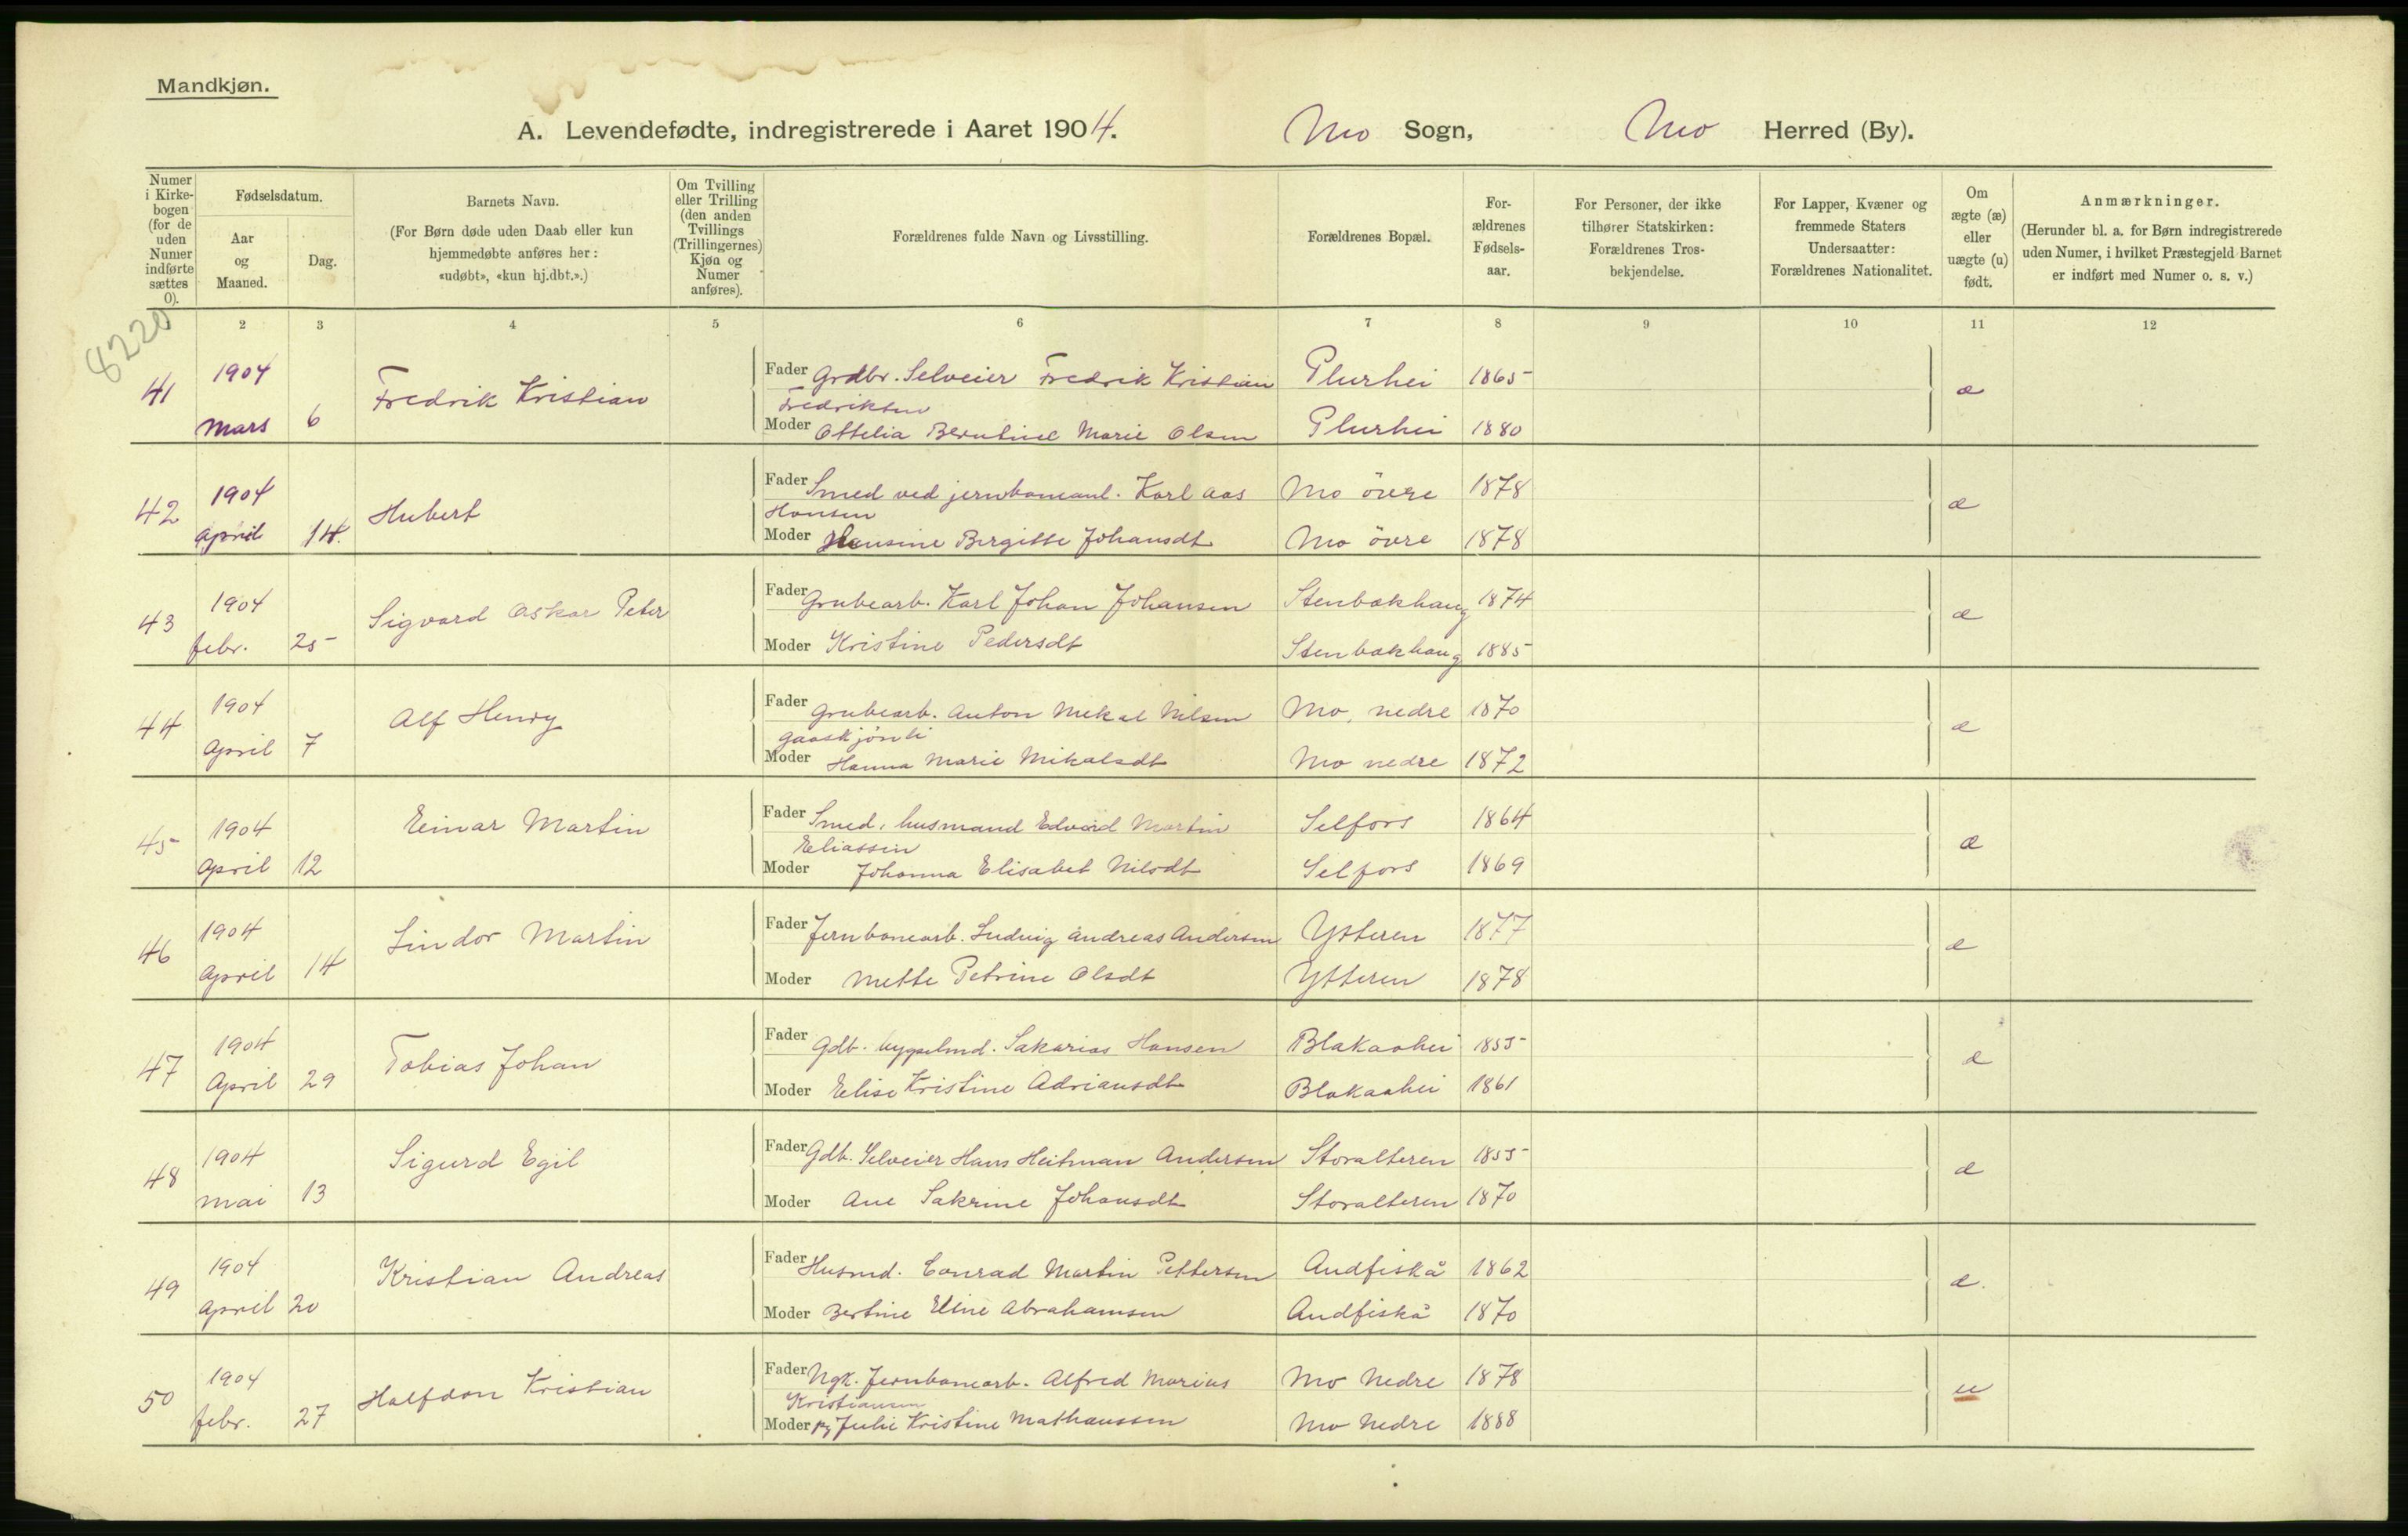 Mandkjøn.
A. Levendefødte, indregistrerede i Aaret 1904. Mo Sogn, Mo Herred (By).
Numer i Kirkebogen (for de uden Numer indførte sættes 0).
Fødselsdatum.
Aar og Maaned.
Dag.
Barnets Navn.
(For Børn døde uden Daab eller kun hjemmedøbte anføres her: «udøbt», «kun hj.dbt.».)
Om Tvilling eller Trilling (den anden Tvillings (Trillingernes) Kjøn og Numer anføres).
Forældrenes fulde Navn og Livsstilling.
Forældrenes Bopæl.
Forældrenes Fødselsaar.
For Personer, der ikke tilhører Statskirken: Forældrenes Trosbekjendelse.
For Lapper, Kvæner og fremmede Staters Undersaatter: Forældrenes Nationalitet.
Om ægte (æ) eller uægte (u) født.
Anmærkninger.
(Herunder bl. a. for Børn indregistrerede uden Numer, i hvilket Præstegjeld Barnet er indført med Numer o. s. v.)
8220
2 3 4 5 6 7 8 9 10 11 12
41 1904 Mars 6 Fredrik Kristian Fader Grdbr. Selveier Fredrik Kristian Plurhei 1865 æ
Fredriksen
Moder Ottelia Berntine Marie Olsen Plurhei 1880
42 1904 April 14. Hubert Fader Smed ved jernbaneanl. Karl Aas Mo övre 1878 æ
Hansen
Moder Hansine Birgitte Johansdt Mo övre 1878
43 1904 febr. 25 Sigvard Oskar Peter Fader Grubearb. Karl Johan Johansen Stenbækhaug 1874 æ
Moder Kristine Pedersdt Stenbækhaug 1885
44 1904 April 7 Alf Henry Fader Grubearb. Anton Mekal Nilsen Mo, nedre 1870 æ
Gaaskjönli
Moder Hanna Marie Mikalsdt Mo nedre 1872
45 1904 April 12 Einar Martin Fader Smed, husmand Edvard Martin Selfors 1864 æ
Eliassen
Moder Johanna Elisabet Nilsdt Selfors 1869
46 1904 April 14 Sindor Martin Fader Jernbanearb. Ludvig Andreas Andersen Ytteren 1877 æ
Moder Mette Petrine Olsdt Ytteren 1878
47 1904 April 29 Tobias Johan Fader Gdb. bygselmd. Sakarias Hansen Blakaahei 1855 æ
Moder Elise Kristine Adriansdt Blakaahei 1861
48 1904 Mai 13 Sigurd Egil Fader Gdb. Selveier Hans Heitman Andersen Storalteren 1855 æ
Moder Ane Sakrine Johansdt Storalteren 1870
49 1904 April 20 Kristian Andreas Fader Husmd. Conrad Martin Pettersen Andfiskå 1862 æ.
Moder Bertine Eline Abrahamsen Andfiskå 1870
50 1904 febr. 27 Halfdan Kristian Fader Ugk. Jernbanearb. Alfred Marius Mo Nedre 1878 u
Kristiansen
Moder pg Julie Kristine Mathæussen Mo Nedre 1888